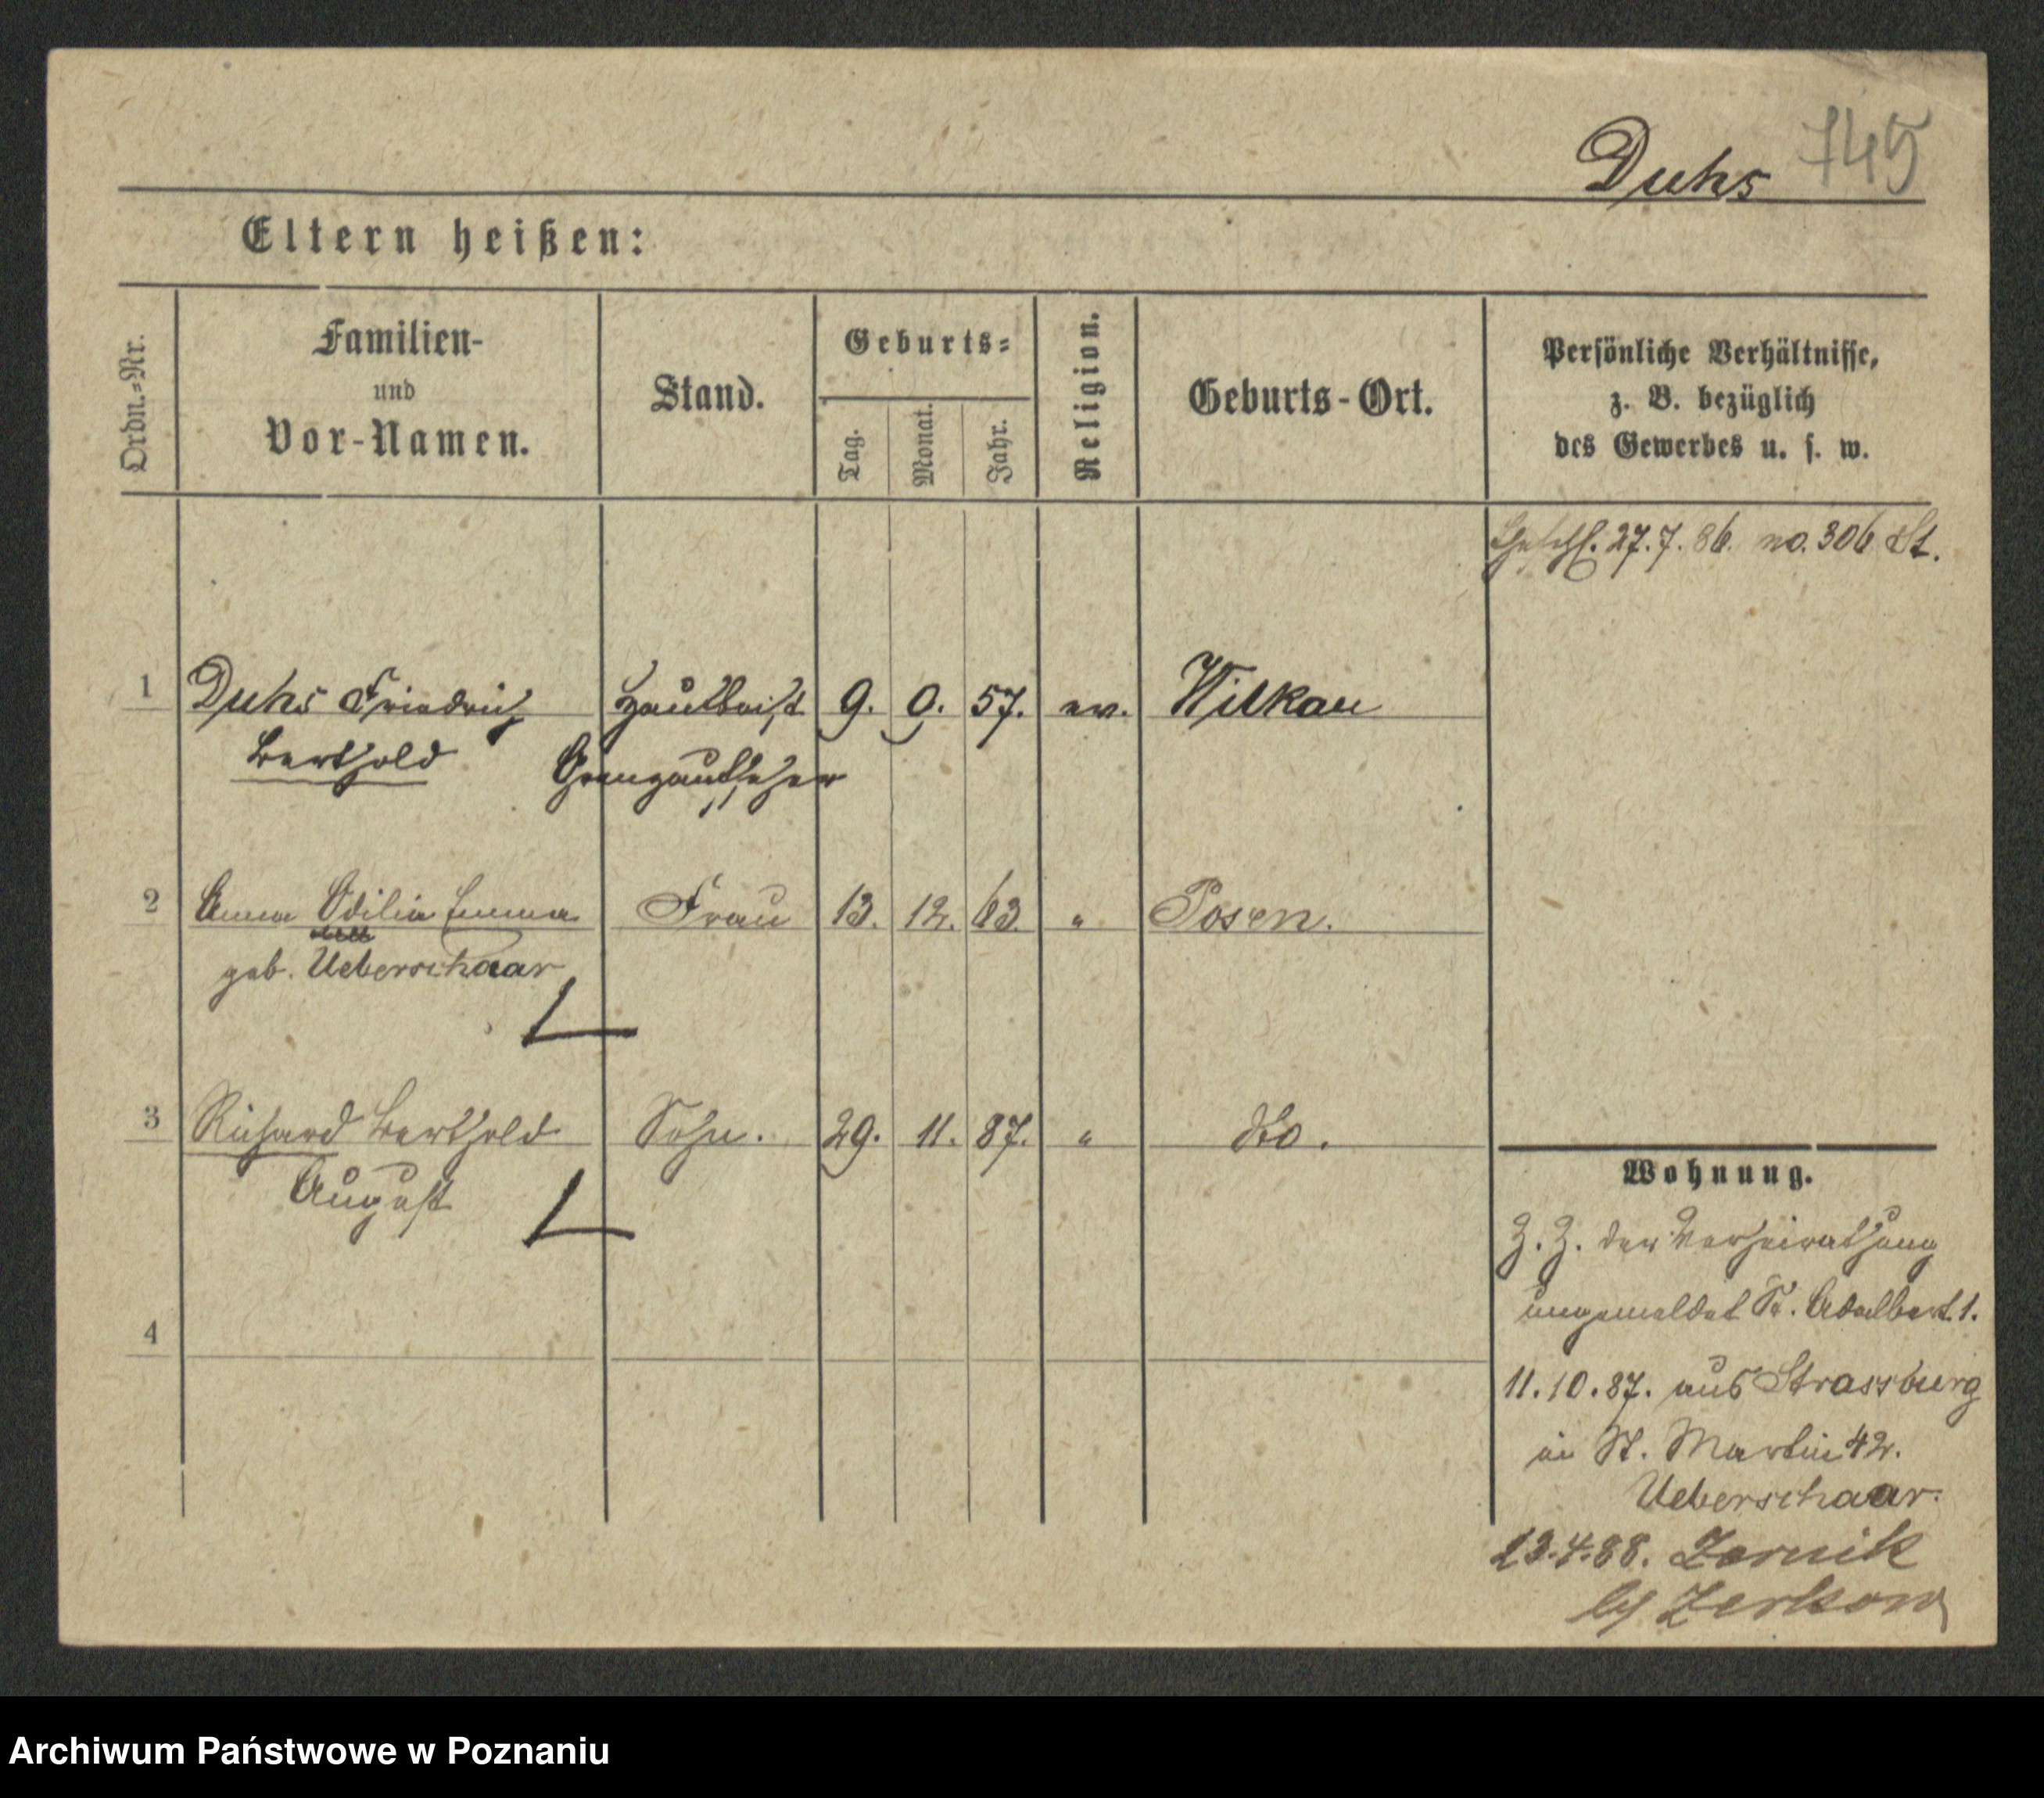 Duhs 745
Eltern heißen:
Ordn.=Nr.
Familien-
und
Vor-Namen.
Stand.
Geburts=
Tag.
Monat.
Jahr.
Religion.
Geburts-Ort.
Persönliche Verhältnisse,
z. B. bezüglich
des Gewerbes u. s. w.
27.7.86. no. 306 St.
1 Duhs Friedrich Hautboist 9. 9. 57. ev. Wilkau
Berthold Grenzaufseher
2 Anna Odilia Emma Frau 13. 12. 63. " Posen.
geb. Ueberschaar
3 Richard Berthold Sohn. 29. 11. 87. " dto.
August
4
Wohnung.
Z. Z. der Verheirathung
ungemeldet St. Adalbert 1.
11.10.87. aus Strassburg
in St. Martin 42.
Ueberschaar.
23.4.88. Zernik
b/ Zerkow
Archiwum Państwowe w Poznaniu